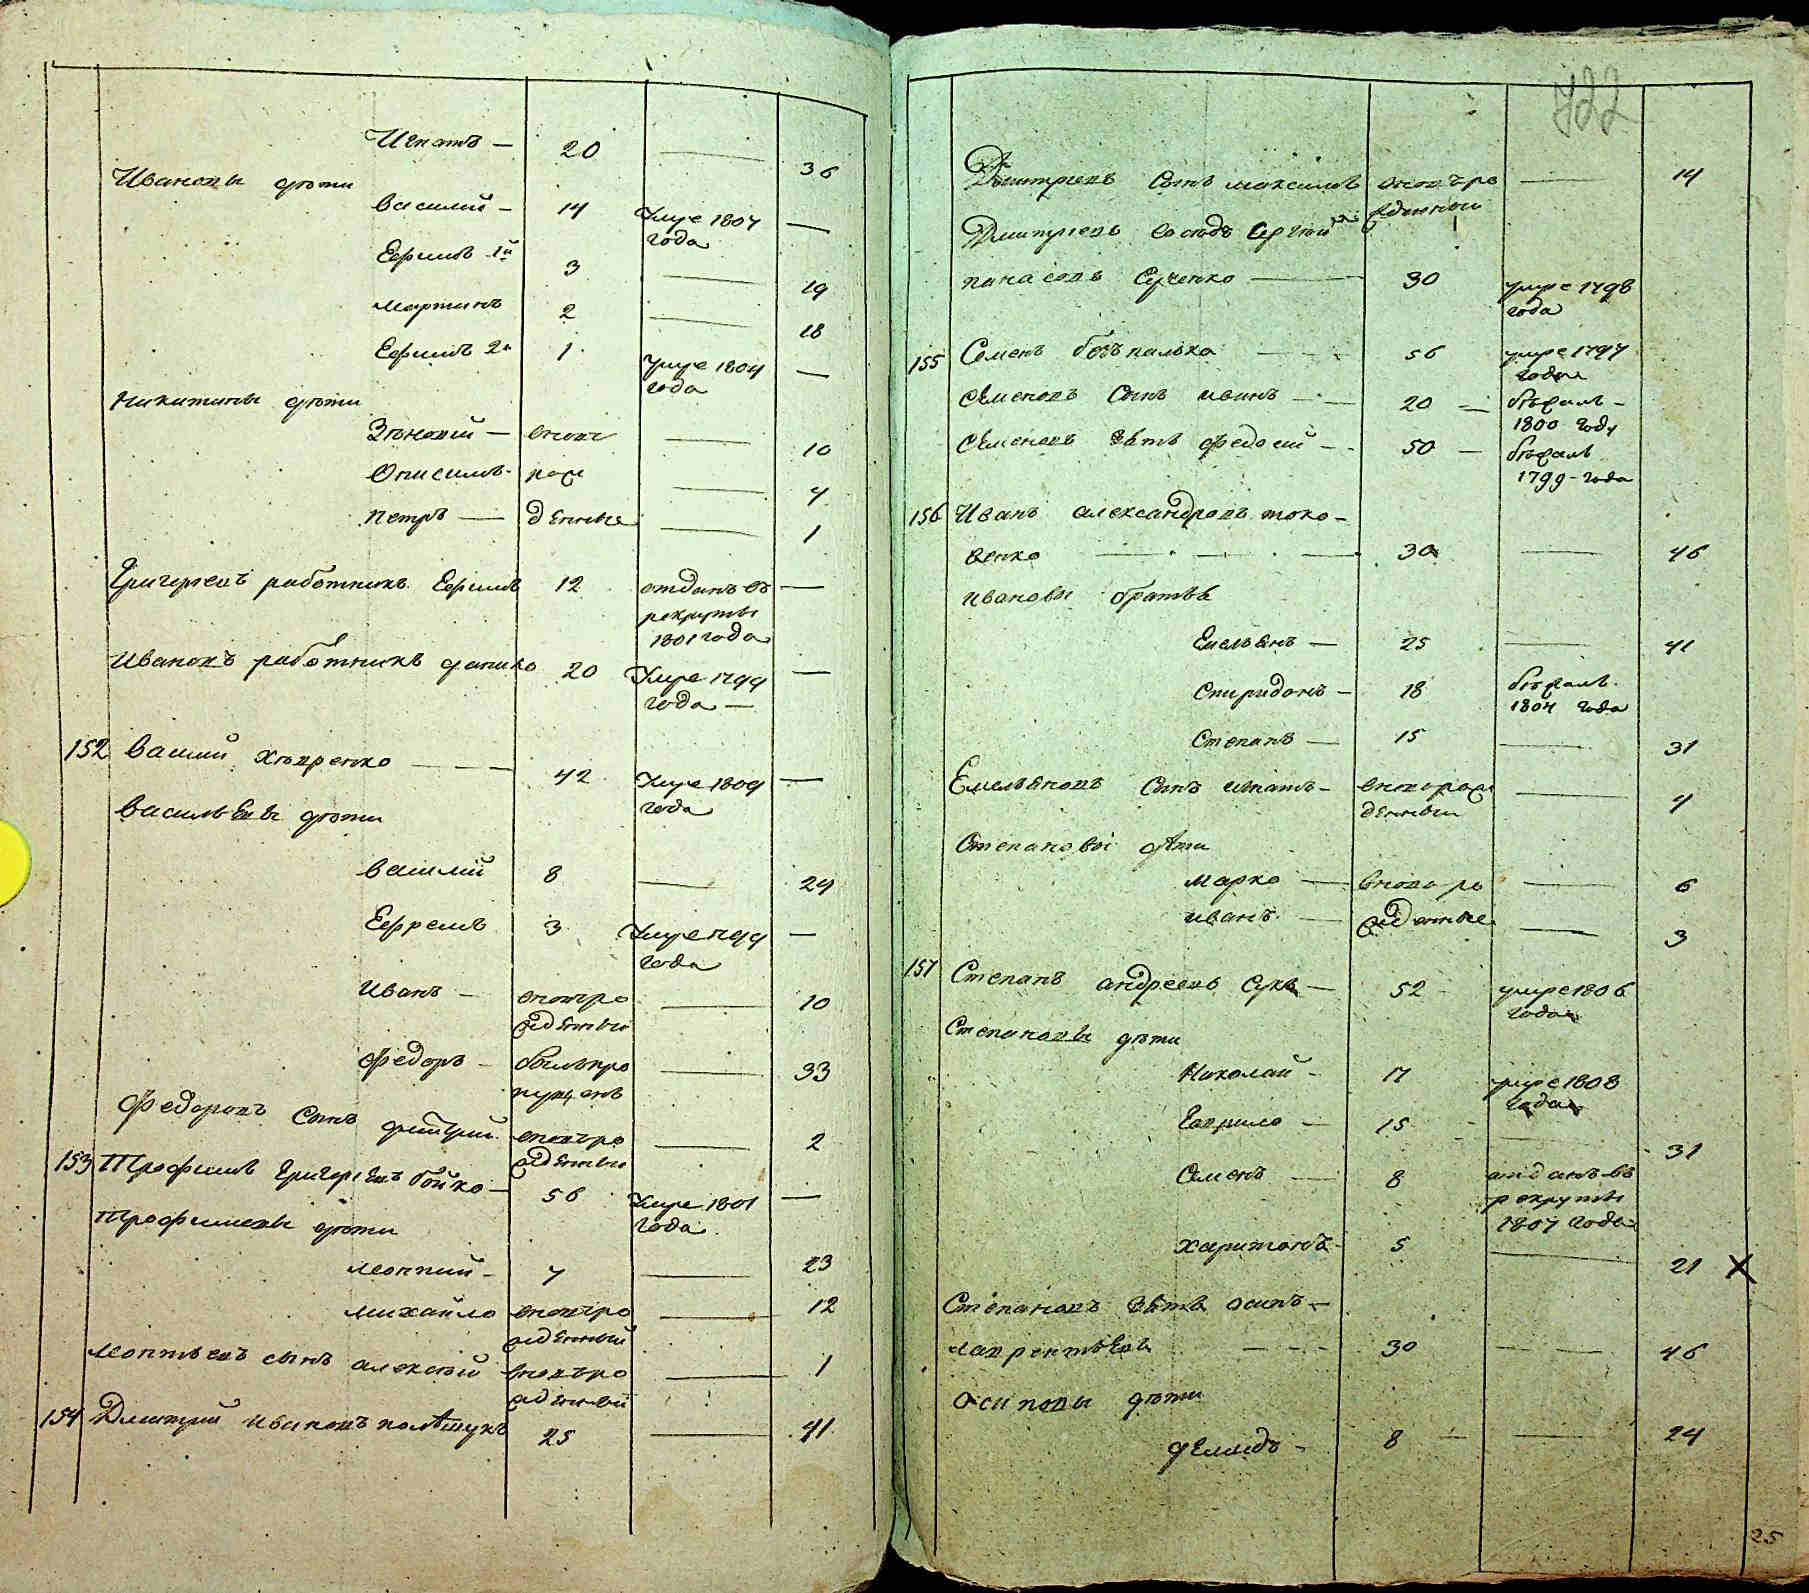 Игнатъ — 20 — 36
Ивановы дѣти
Василий — 14 Умре 1807 года —
Ефимъ 1й 3 — 19
Мартинъ 2 — 18
Ефимъ 2й 1 Умре 1804 года —
Никитины дѣти
Зѣновий — вновь — 10
Онисимъ — рож — 4
Петръ — денные — 1
Григориевъ работникъ Ефимъ 12 отданъ въ —
рекруты
1801 года
Ивановъ работникъ данило 20 Умре 1799 —
года —
152 Василий Хивренко — 42 Умре 1809 —
года
Васильевы дѣти
Василий 8 — 24
Ефремъ 3 Умре 1799 —
года
Иванъ — вновьро — 10
жденный
Федоръ — былъ про — 33
пущенъ
Федоровъ Сынъ дмитрий вновьро — 2
жденный
153 Трофимъ Григориевъ бойко — 56 Умре 1801 —
года
Трофимовы дѣти
леонтий — 7 — 23
михайло вновьро — 12
жденный
леонтьевъ сынъ алексѣй вновъро — 1
жденный
154 Дмитрий Ивановъ полѣщукъ 25 — 41
722
Дмитриевъ Сынъ максимъ вновъро — 14
жденный
Дмитриевъ сосѣдъ Сергий
панасовъ Сученко — 30 умре 1798
года
155 Семенъ безпалько — 56 умре 1797
года
Семеновъ Сынъ иванъ — 20 — бѣжалъ —
1800 году
Семеновъ зять федосий — 50 — бѣжалъ
1799 — года
156 Иванъ александровъ токо-
венко — 30 — 46
ивановы братья
Емельянъ — 25 — 41
Спиридонъ — 18 бѣжалъ
1804 года
Степанъ — 15 — 31
Емельяновъ Сынъ игнатъ — вноворож — 4
денный
Степановы дѣти
марко — вново ро — 6
иванъ — жденные — 3
157 Степанъ андреевъ Сукъ — 52 — умре 1806
года
Степановы дѣти
Николай — 17 умре 1808
года
Гаврило — 15 — 31
Семенъ — 8 отданъ въ
рекруты
1807 года
Харитонъ — 5 — 21 X
Степановъ зять осипъ —
лаврентьевъ — 30 — 46
Осиповы дѣти
демидъ — 8 — 24
25